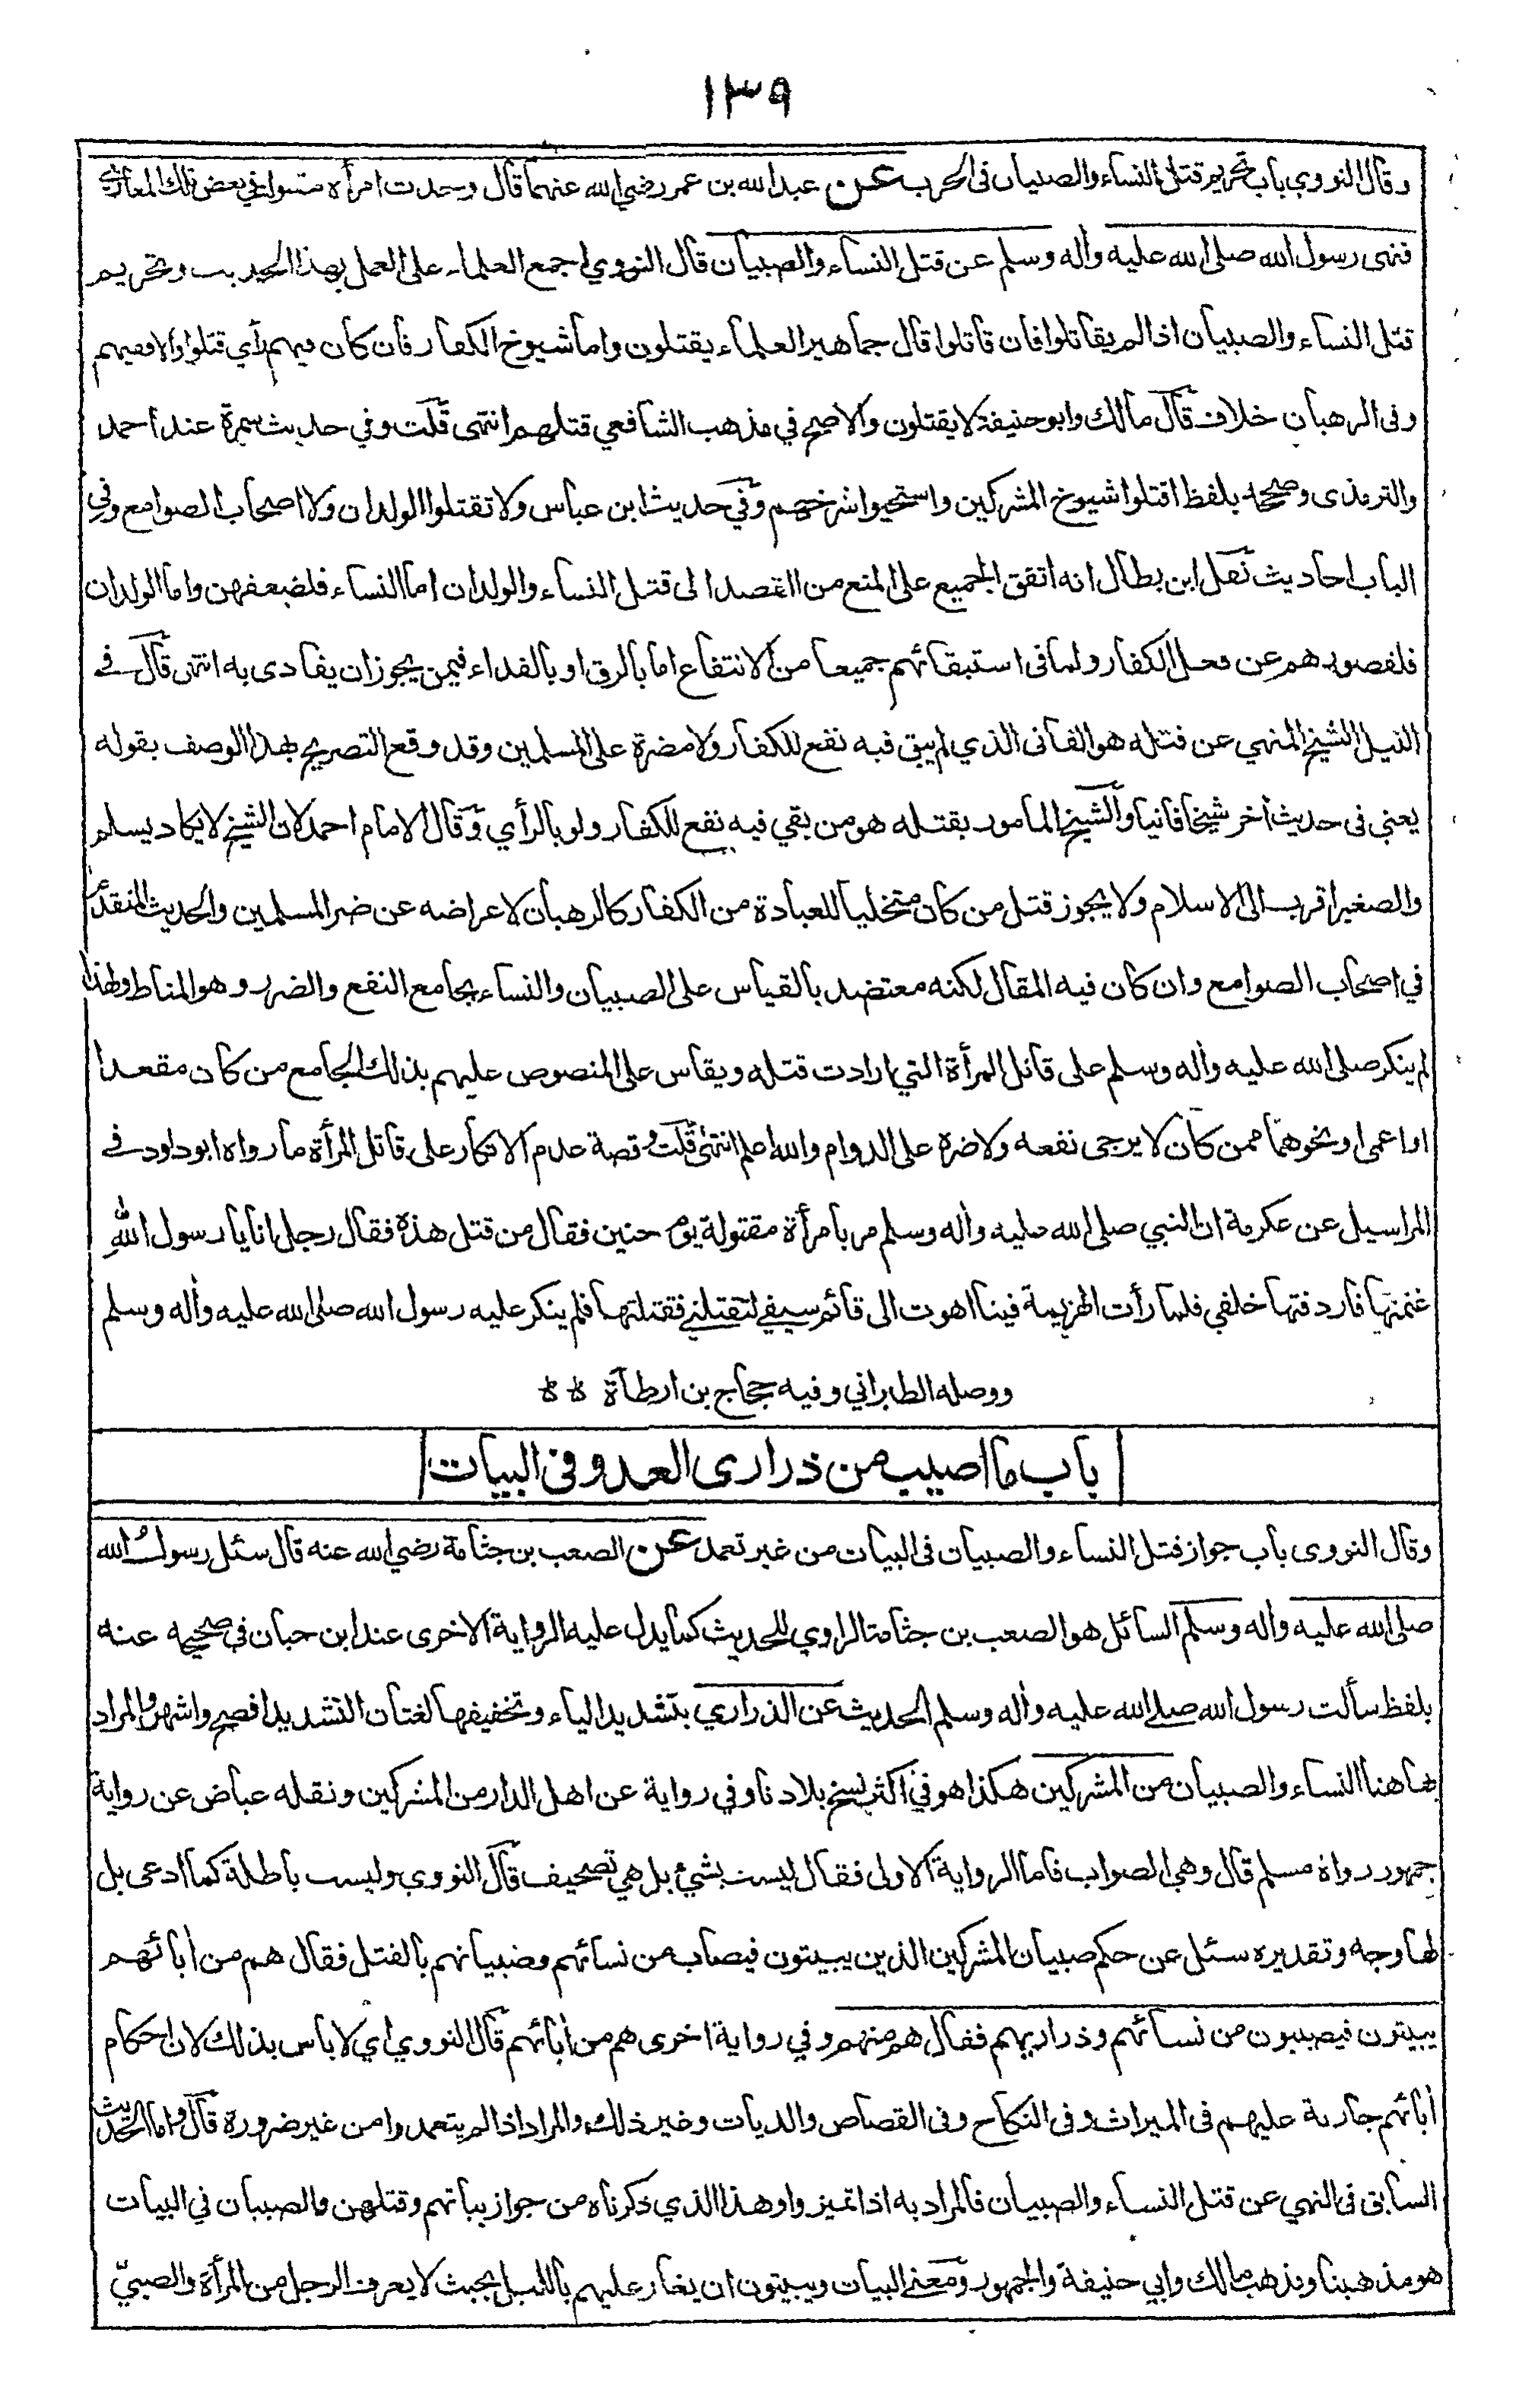 ١٣٩
وقال النووي باب تحريم قتل النساء والصبيان فى الحرب عن عبدالله بن عمر رضي الله عنهما قال وجدت امرأة مقتولة في بعض تلك المغازي
فنهى رسول الله صلى الله عليه وأله وسلم عن قتل النساء والصبيان قال النووي اجمع العلماء على العمل بهذا الحديث وتحريم
قتل النساء والصبيان اذا لم يقاتلوا فان قاتلوا قال جماهير العلماء يقتلون واما شيوخ الكفار فان كان فيهم رأي قتلوا والا ففيهم
وفى الرهبان خلاف قال مالك وابو حنيفة لا يقتلون والاصح في مذهب الشافعي قتلهم انتهى قلت وفي حديث سمرة عند احمد
والترمذى وصححه بلفظ اقتلوا شيوخ المشركين واستحيوا شرخهم وفي حديث ابن عباس ولا تقتلوا الولدان ولا اصحاب الصوامع وفي
الباب احاديث نقل ابن بطال انه اتفق الجميع على المنع من القصد الى قتل النساء والولدان اما النساء فلضعفهن واما الولدان
فلقصورهم عن فعل الكفار ولما فى استبقائهم جميعا من الانتفاع اما بالرق او بالفداء فيمن يجوز ان يفادى به انتهى قال في
النيل الشيخ المنهي عن قتله هو الفانى الذي لم يبق فيه نفع للكفار ولا مضرة على المسلمين وقد وقع التصريح بهذا الوصف بقوله
يعني فى حديث أخر شيخا فانيا والشيخ المامور بقتله هو من بقي فيه نفع للكفار ولو بالرأي وقال الامام احمد لان الشيخ لا يكاد يسلم
والصغير اقرب الى الاسلام ولا يجوز قتل من كان متخليا للعبادة من الكفار كالرهبان لاعراضه عن ضر المسلمين والحديث المتقدم
في اصحاب الصوامع وان كان فيه المقال لكنه معتضد بالقياس على الصبيان والنساء بجامع النفع والضرر وهو المناط ولهذا
لم ينكر صلى الله عليه وأله وسلم على قاتل المرأة التي ارادت قتله ويقاس على المنصوص عليهم بذلك الجامع من كان مقعدا
او اعمى او نحوهما ممن كان لا يرجى نفعه ولا ضره على الدوام والله اعلم انتهى قلت وقصة عدم الانكار على قاتل المرأة ما رواه ابو داود في
المراسيل عن عكرمة ان النبي صلى الله عليه وأله وسلم مر بامرأة مقتولة يوم حنين فقال من قتل هذه فقال رجل انا يا رسول الله
غنمتها فاردفتها خلفي فلما رأت الهزيمة فينا اهوت الى قائم سيفي لتقتلني فقتلتها فلم ينكر عليه رسول الله صلى الله عليه وأله وسلم
ووصله الطبراني وفيه حجاج بن ارطاة
باب ما اصيب من ذرارى العدو فى البيات
وقال النووى باب جواز قتل النساء والصبيان فى البيات من غير تعمد عن الصعب بن جثامة رضي الله عنه قال سئل رسول الله
صلى الله عليه وأله وسلم السائل هو الصعب بن جثامة الراوي للحديث كما يدل عليه الرواية الاخرى عند ابن حبان في صحيحه عنه
بلفظ سألت رسول الله صلى الله عليه وأله وسلم الحديث عن الذراري بتشديد الياء وتخفيفها لغتان التشديد افصح واشهر والمراد
بها هنا النساء والصبيان من المشركين هكذا هو في اكثر نسخ بلادنا وفي رواية عن اهل الدار من المشركين ونقله عياض عن رواية
جمهور رواة مسلم قال وهي الصواب فاما الرواية الاولى فقال ليست بشئ بل هي تصحيف قال النووي وليست باطلة كما ادعى بل
لها وجه وتقديره سئل عن حكم صبيان المشركين الذين يبيتون فيصاب من نسائهم وصبيانهم بالقتل فقال هم من أبائهم
يبيتون فيصيبون من نسائهم وذراريهم فقال هم منهم وفي رواية اخرى هم من أبائهم قال النووي اي لا باس بذلك لان احكام
أبائهم جارية عليهم فى الميراث وفى النكاح وفى القصاص والديات وغير ذلك والمراد اذا لم يتعمدوا من غير ضرورة قال واما الحديث
السابق فى النهي عن قتل النساء والصبيان فالمراد به اذا تميزوا وهذا الذي ذكرناه من جواز بياتهم وقتلهن والصبيان في البيات
هو مذهبنا ومذهب مالك وابي حنيفة والجمهور ومعنى البيات ويبيتون ان يغار عليهم بالليل بحيث لا يعرف الرجل من المرأة والصبيّ